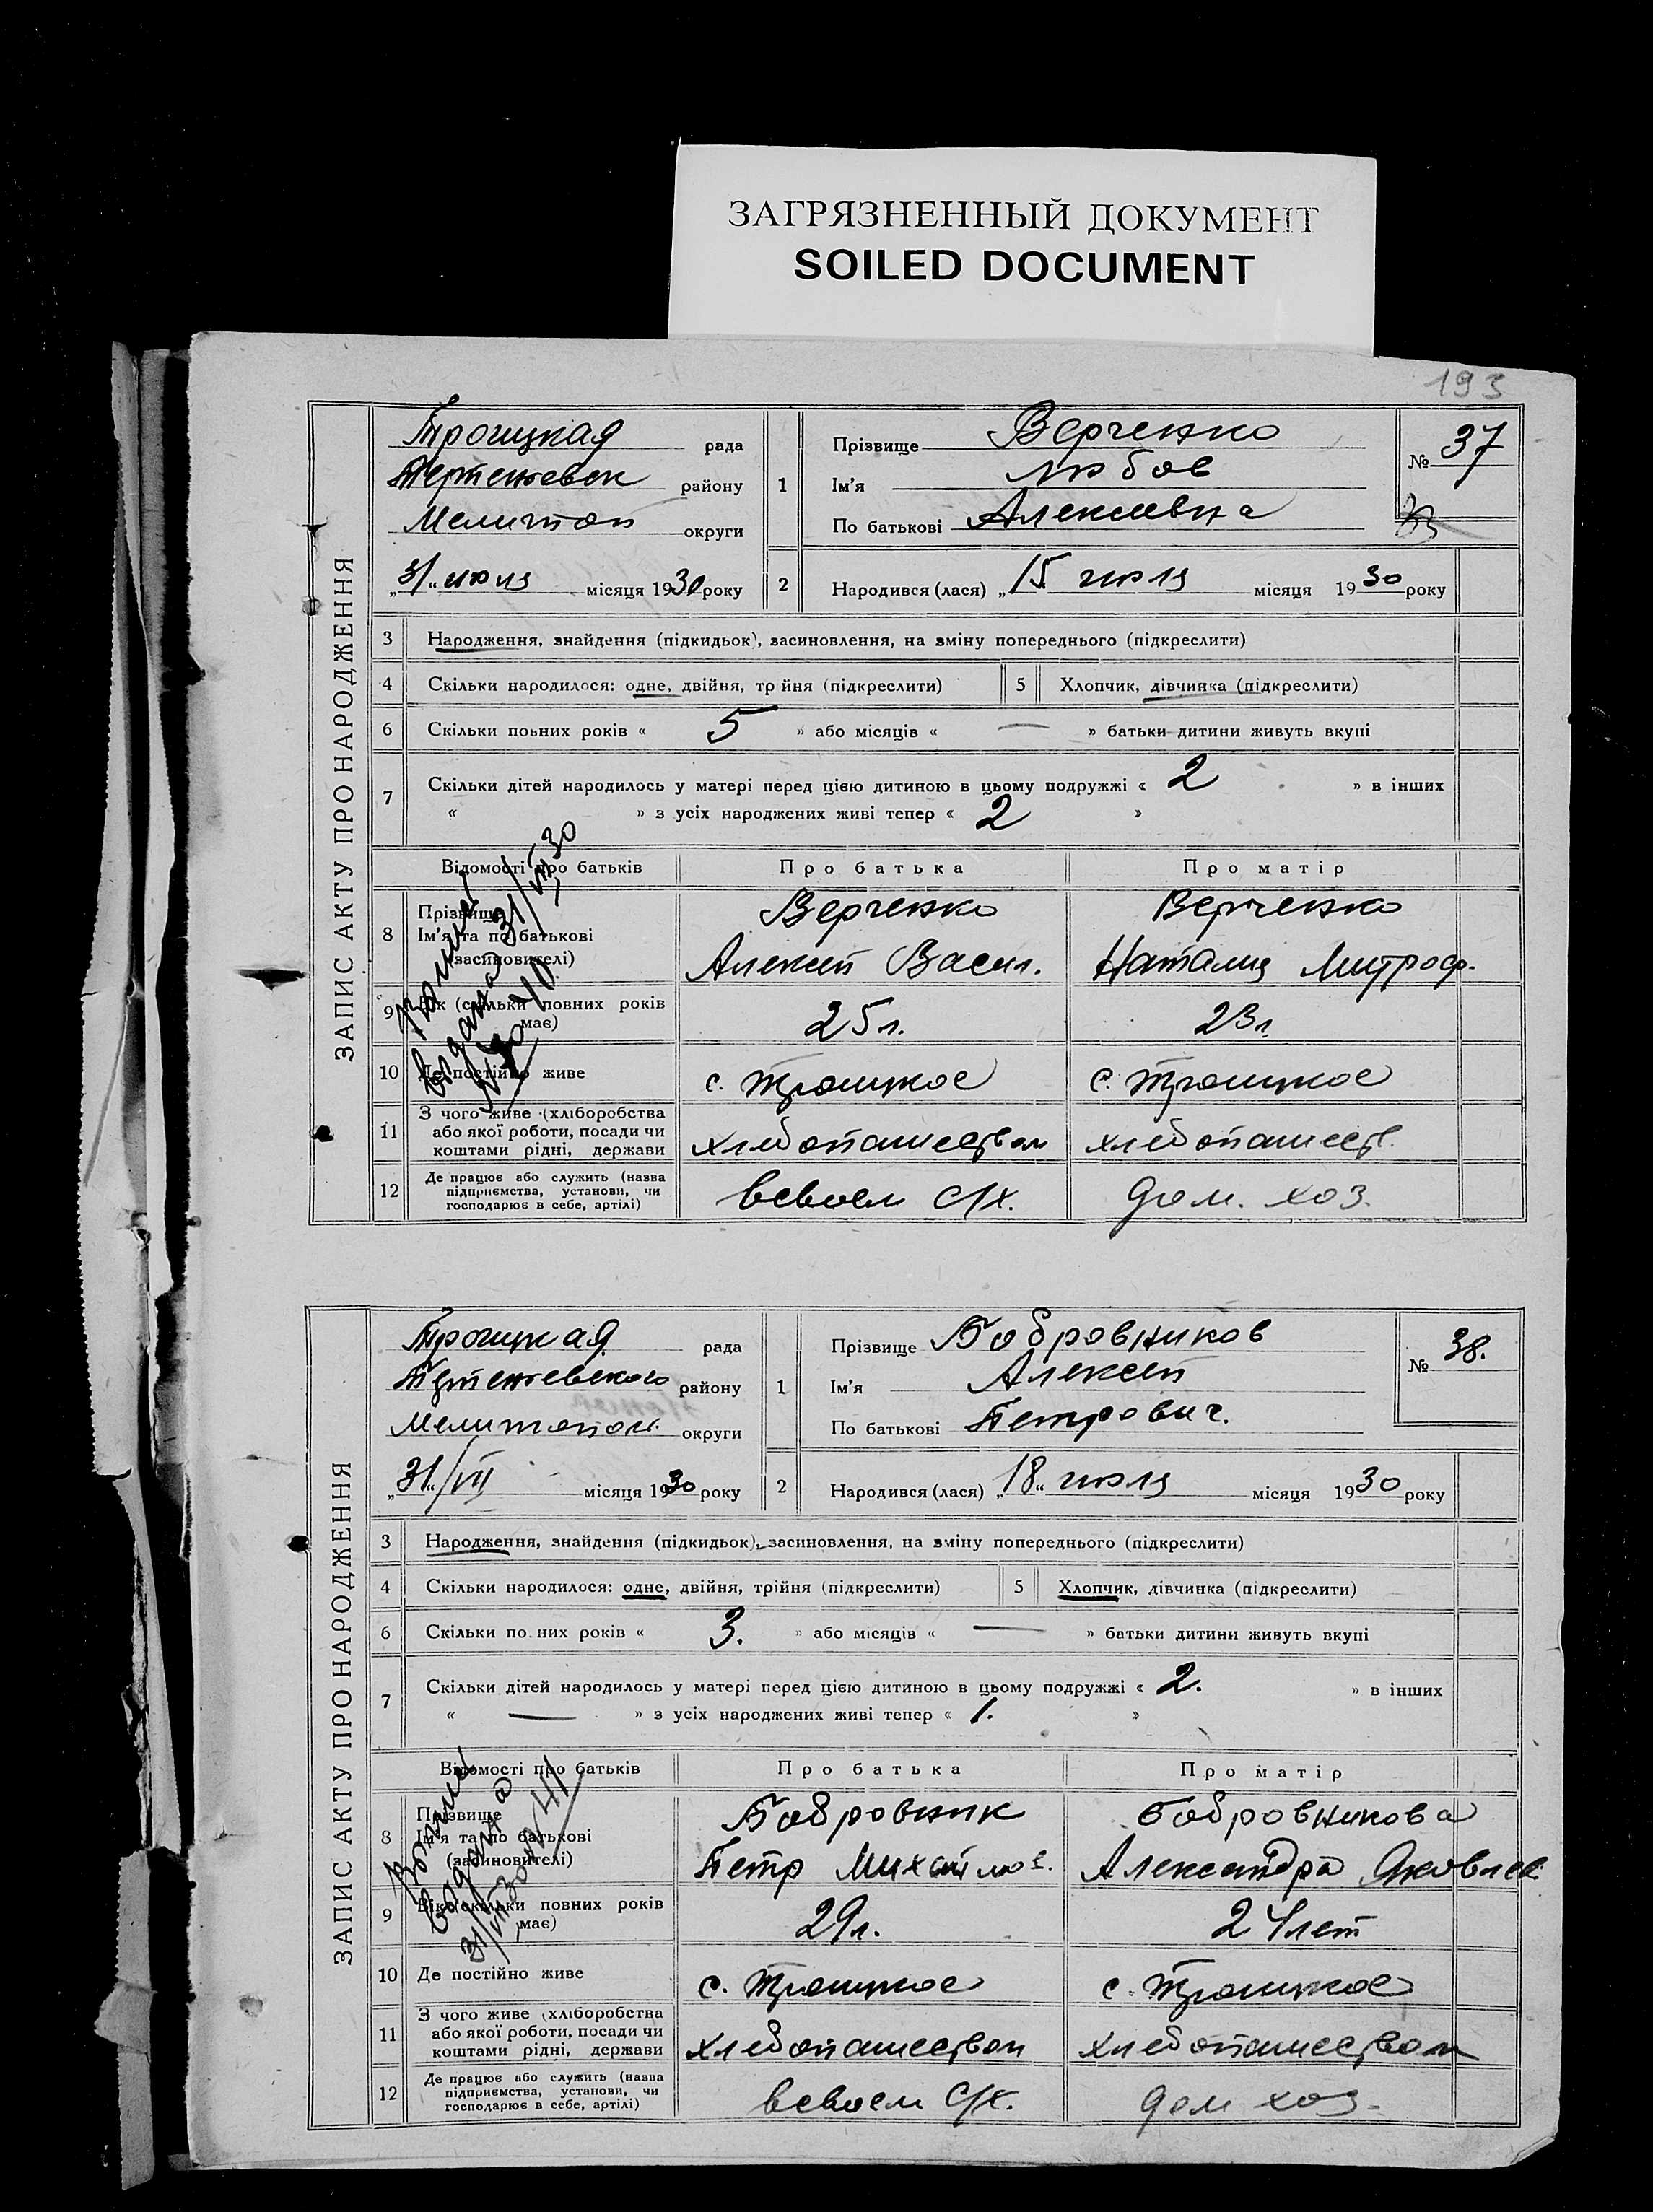 ЗАГРЯЗНЕННЫЙ ДОКУМЕНТ
SOILED DOCUMENT
193
ЗАПИС АКТУ ПРО НАРОДЖЕННЯ
Троицкая рада
район у
Мелитоп округи
„31“ июля місяця 1930 року
1
Прізвище Верченко
Ім'я Любов
По батькові Алексеевна
№ 37
2
Народився (лася) „15 июля місяця 1930 року
3 Народження, знайдення (підкидьок), засиновлення, на зміну попереднього (підкреслити)
4 Скільки народилося: одне, двійня, трійня (підкреслити) 5 Хлопчик, дівчинка (підкреслити)
6 Скільки повних років « 5 » або місяців « — » батьки дитини живуть вкупі
7 Скільки дітей народилось у матері перед цією дитиною в цьому подружжі « 2 » в інших
« » з усіх народжених живі тепер « 2 »
Відомості про батьків Про батька Про матір
8 Прізвище Верченко Верченко
Ім'я та по батькові
(засиновителі) Алексей Васил. Наталия Митроф.
9 Вік (скільки повних років має) 25 л. 23 л.
10 Де постійно живе с. Троицкое с. Троицкое
11 З чого живе (хліборобства
або якої роботи, посади чи
коштами рідні, держави хлебопашеством хлебопашеств.
12 Де працює або служить (назва
підприємства, установи, чи
господарює в себе, артілі) всвоем с/х. дом. хоз.
Выпись
выдана 31/VII 30
№ 40
ЗАПИС АКТУ ПРО НАРОДЖЕННЯ
Троицкая рада
району
Мелитопол. округи
„31“/VII місяця 1930 року
1
Прізвище Бобровников
Ім'я Алексей
По батькові Петрович.
№ 38.
2
Народився (лася) „18“ июля місяця 1930 року
3 Народження, знайдення (підкидьок), засиновлення, на зміну попереднього (підкреслити)
4 Скільки народилося: одне, двійня, трійня (підкреслити) 5 Хлопчик, дівчинка (підкреслити)
6 Скільки по.них років « 3. » або місяців « — » батьки дитини живуть вкупі
7 Скільки дітей народилось у матері перед цією дитиною в цьому подружжі « 2. » в інших
« — » з усіх народжених живі тепер « 1. »
Відомості про батьків Про батька Про матір
8 Прізвище Бобровник Бобровникова
Ім'я та по батькові
(засиновителі) Петр Михайлов. Александра Яковлев
9 Вік (скільки повних років має) 29 л. 24 лет
10 Де постійно живе с. Троицкое с. Троицкое
11 З чого живе (хліборобства
або якої роботи, посади чи
коштами рідні, держави хлебопашеством хлебопашеством
12 Де працює або служить (назва
підприємства, установи, чи
господарює в себе, артілі) всвоем с/х. дом хоз.
Выпись
выдана
31/VII 30 № 41